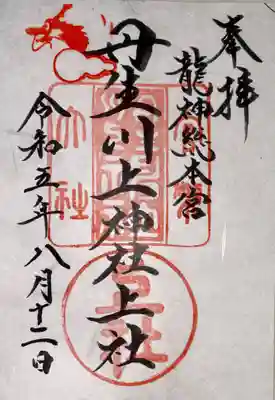 奉拝
龍神総本宮
丹生川上神社上社
令和五年八月十二日